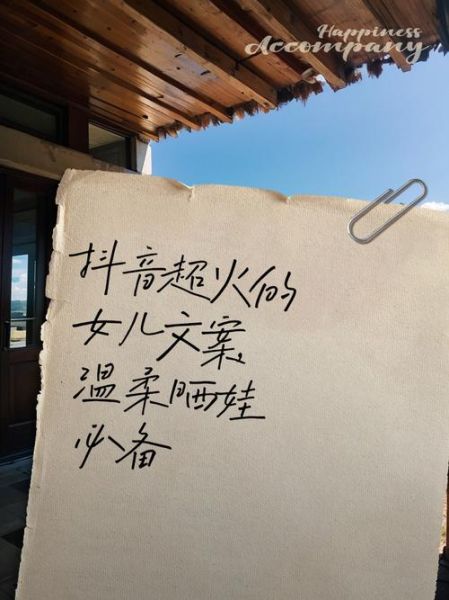 Happiness
Accompany
抖音超火的
女儿文案,
温柔晒娃
必备